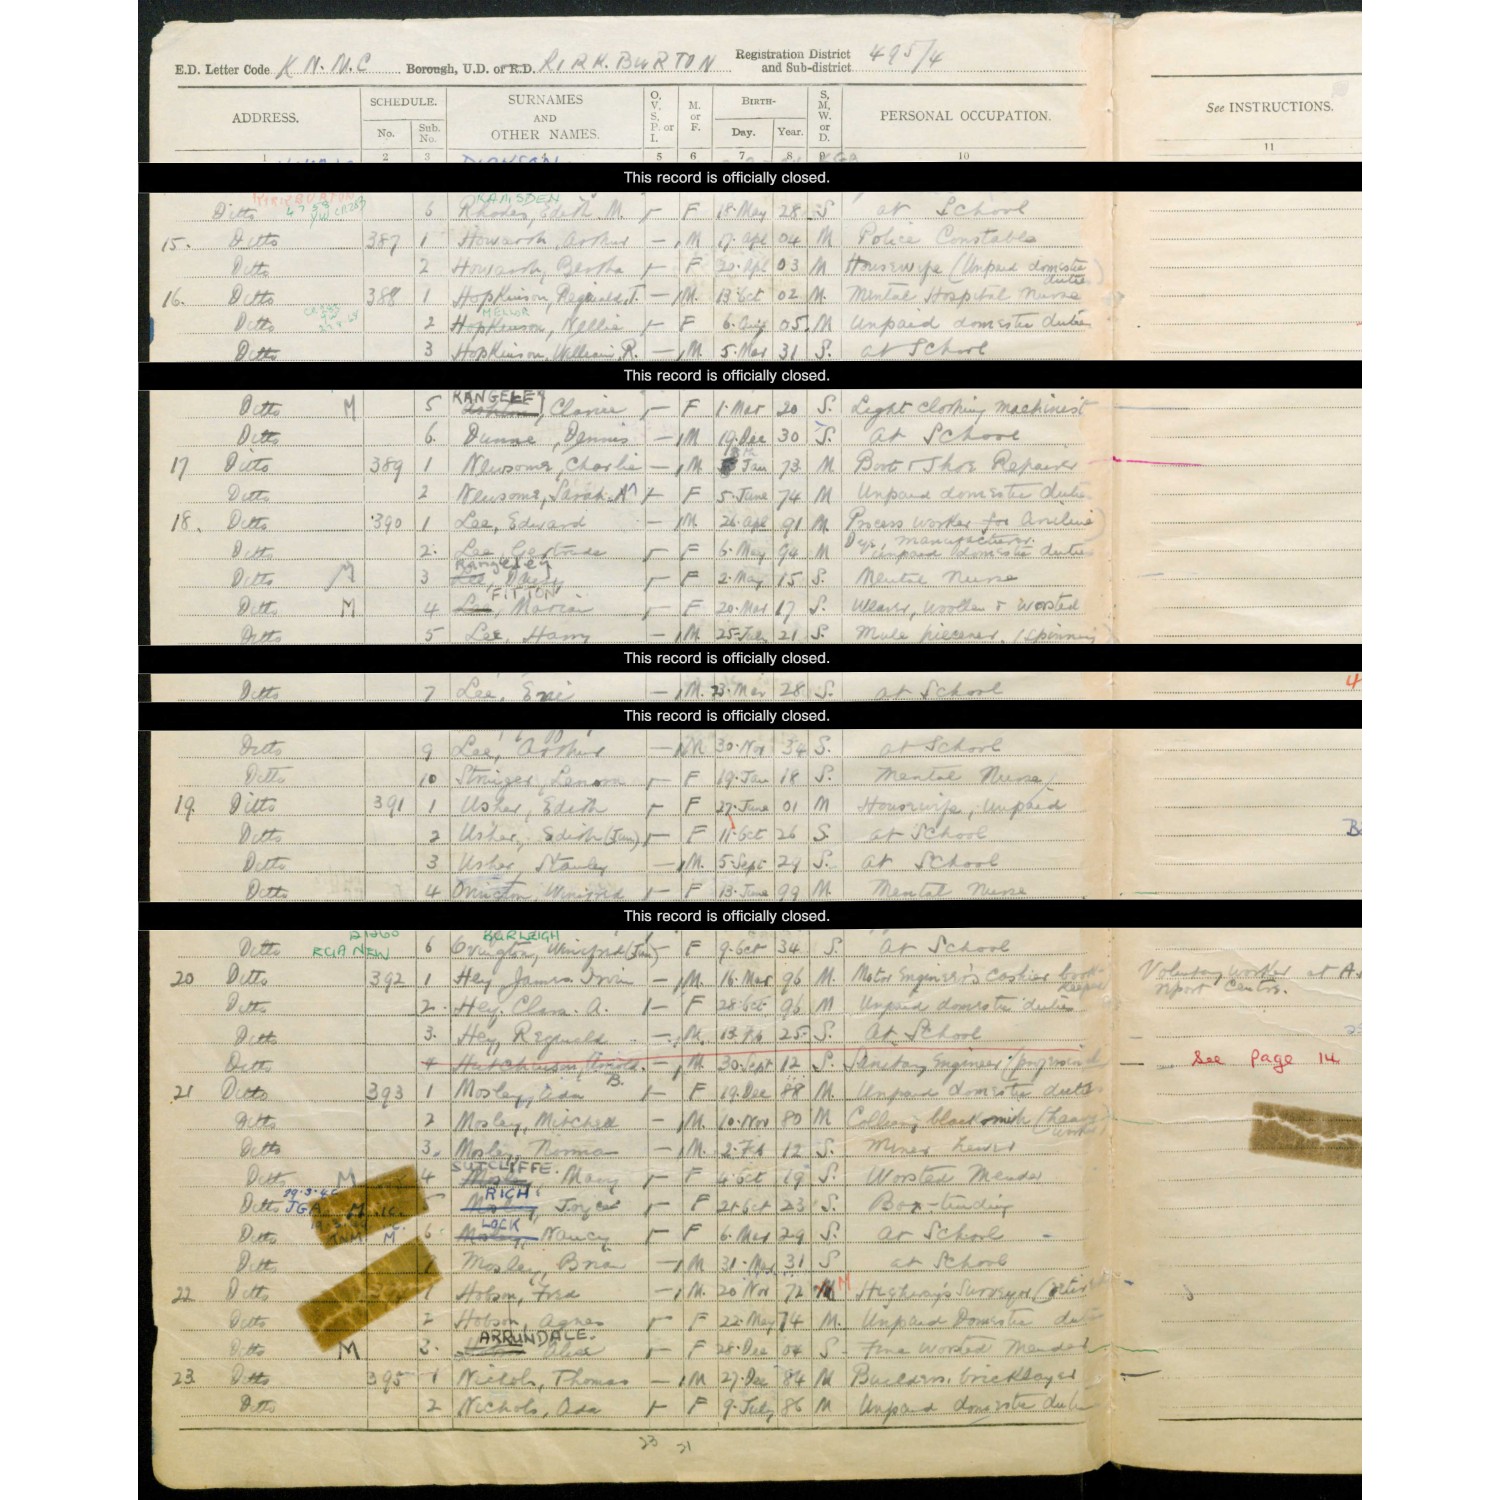 E.D. Letter Code K N. M. C Borough, U.D. or R.D. KIRK. BURTON Registration District and Sub-district 495/4
ADDRESS. SCHEDULE. No. Sub. No. SURNAMES AND OTHER NAMES. O, V, S, P. or I. M. or F. BIRTH- Day. Year. S, M, W. or D. PERSONAL OCCUPATION. See INSTRUCTIONS.
1 2 3 5 6 7 8 9 10 11
This record is officially closed.
KIRKBURTON RAMSDEN
Ditto 6 Rhodes, Edith M. F 18 May 28 S at School
15. Ditto 387 1 Howarth, Arthur — M 17 Apl 04 M Police Constable
Ditto 2 Howarth, Bertha F 20 Apl 03 M Housewife (Unpaid domestic duties)
16. Ditto 388 1 Hopkinson, Reginald, T. — M. 13 Oct 02 M. Mental Hospital Nurse
MELLOR
Ditto 2 Hopkinson, Nellie F 6 Aug 05 M Unpaid domestic duties
Ditto 3 Hopkinson, William, R. — M. 5 Mar 31 S. at School
This record is officially closed.
RANGELEY
Ditto M 5 Clarice F 1 Mar 20 S. Light clothing machinist
Ditto 6. Dunne, Dennis — M 19 Dec 30 S. at School
17 Ditto 389 1 Newsome, Charlie — M. Jan 73 M Boot & Shoe Repairer
Ditto 2 Newsome, Sarah A F 5 June 74 M Unpaid domestic duties
18. Ditto 390 1 Lee, Edward — M. 26 Apl 91 M. Process worker for Aniline Dye, manufacturer.
Ditto 2. Lee, Gertrude F 6 May 94 M Unpaid domestic duties
Rangeley
Ditto M 3 Lee, Daisy F 2 May 15 S. Mental Nurse
FITTON
Ditto M 4 Lee, Marian F 20 Mar 17 S. Weaver, Woollen & Worsted
Ditto 5 Lee, Harry — M 25 July 21 S. Mule piecener. (Spinning)
This record is officially closed.
Ditto 7 Lee, Eric — M. 23 Mar 28 S. at School 4
This record is officially closed.
Ditto 9 Lee, Arthur — M 30 Nov 34 S. at School
Ditto 10 Stringer, Lenora F 19 Jan 18 S. Mental Nurse
19. Ditto 391 1 Usher, Edith F 27 June 01 M Housewife, Unpaid
Ditto 2 Usher, Edith (Jun) F 11 Oct 26 S at School
Ditto 3 Usher, Stanley — M. 5 Sept 29 S. at School
Ditto 4 Ovington, Winifred F 13 June 99 M. Mental Nurse
This record is officially closed.
BURLEIGH
Ditto 6 Ovington, Winifred (Jun) F 9 Oct 34 S. at School
20 Ditto 392 1 Hey, James Irvin — M. 16 Mar 96 M. Motor Engineer's Cashier book-keeper Voluntary worker at A. report Centre.
Ditto 2. Hey, Clara. A. F 28 Oct 96 M Unpaid domestic duties
Ditto 3. Hey, Reginald — M. 13 Feb 25 S. At School
Ditto 4 Hutchinson, Arnold. B. — M. 30 Sept 12 S. Sanitary Engineer See Page 14
21 Ditto 393 1 Mosley, Ada F 19 Dec 88 M. Unpaid domestic duties
Ditto 2 Mosley, Mitchel M. 10 Nov 80 M Colliery blacksmith (heavy worker)
Ditto 3. Mosley, Norman — M. 2 Feb 12 S. Miner hewer
SUTCLIFFE.
Ditto M 4 Mosley, Mary F 4 Oct 19 S. Worsted Mender
RICH
Ditto JGA M 5 Mosley, Joyce F 21 Oct 23 S. Box-tending
LOCK
Ditto M 6 Mosley, Nancy F 6 Mar 29 S. at School
Ditto Mosley, Brian — M 31 Mar 31 S at School
22 Ditto 1 Hobson, Fred — M. 20 Nov 72 M Highway's Surveyor (retired)
Ditto 2 Hobson, Agnes F 22 May 74 M. Unpaid Domestic duties
ARRUNDALE.
Ditto M 3. Alice F 28 Dec 04 S Fine Worsted Mender
23 Ditto 395 1 Nichols, Thomas — M 27 Dec 84 M Builders, bricklayer
Ditto 2 Nichols, Ada F 9 July 86 M Unpaid domestic duties
23 21